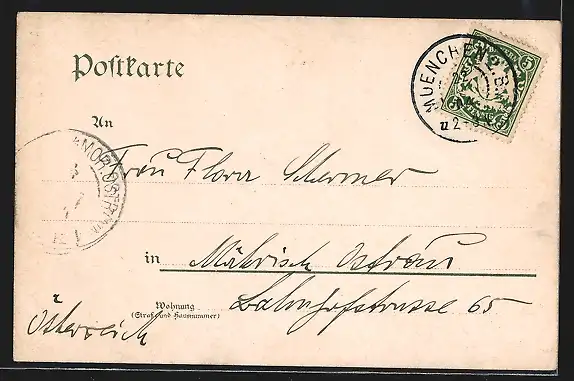 Postkarte
MUENCHEN 2. B.
5 5
An
Frau Flora
MOR. OSTRAU
in Mährisch Ostrau
Wohnung
(Straße und Hausnummer)
Bahnhofstrasse 65
Österreich